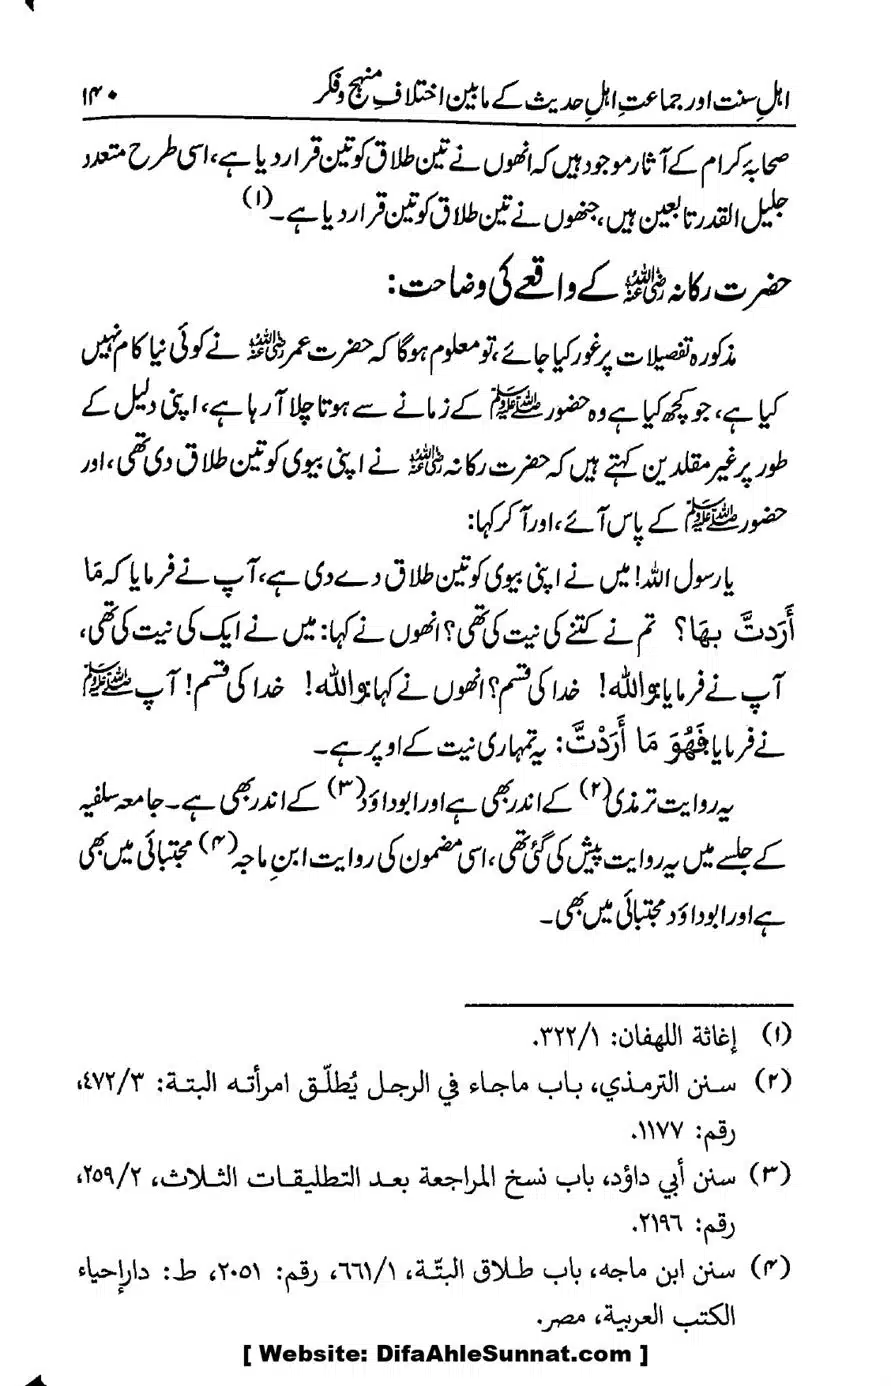 اہلِ سنت اور جماعتِ اہلِ حدیث کے مابین اختلافِ منہج وفکر ۱۴۰
صحابۂ کرام کے آثار موجود ہیں کہ انھوں نے تین طلاق کو تین قرار دیا ہے، اسی طرح متعدد
جلیل القدر تابعین ہیں، جنھوں نے تین طلاق کو تین قرار دیا ہے۔(۱)
حضرت رکانہ رضی اللہ عنہ کے واقعے کی وضاحت:
مذکورہ تفصیلات پر غور کیا جائے، تو معلوم ہوگا کہ حضرت عمر رضی اللہ عنہ نے کوئی نیا کام نہیں
کیا ہے، جو کچھ کیا ہے وہ حضور ﷺ کے زمانے سے ہوتا چلا آرہا ہے، اپنی دلیل کے
طور پر غیر مقلدین کہتے ہیں کہ حضرت رکانہ رضی اللہ عنہ نے اپنی بیوی کو تین طلاق دی تھی، اور
حضور ﷺ کے پاس آئے، اور آکر کہا:
یا رسول اللہ! میں نے اپنی بیوی کو تین طلاق دے دی ہے، آپ نے فرمایا کہ مَا
أَرَدتَّ بِهَا؟ تم نے کتنے کی نیت کی تھی؟ انھوں نے کہا: میں نے ایک کی نیت کی تھی،
آپ نے فرمایا: والله! خدا کی قسم؟ انھوں نے کہا: والله! خدا کی قسم! آپ ﷺ
نے فرمایا: فَهُوَ مَا أَرَدْتَّ: یہ تمہاری نیت کے اوپر ہے۔
یہ روایت ترمذی(۲) کے اندر بھی ہے اور ابوداؤد(۳) کے اندر بھی ہے۔ جامعہ سلفیہ
کے جلسے میں یہ روایت پیش کی گئی تھی، اسی مضمون کی روایت ابنِ ماجہ(۴) مجتبائی میں بھی
ہے اور ابوداؤد مجتبائی میں بھی۔
(۱) إغاثة اللهفان: ۳۲۲/۱.
(۲) سنن الترمذي، باب ماجاء في الرجل يُطلّق امرأته البتة: ٤٧٢/٣،
رقم: ١١٧٧.
(۳) سنن أبي داؤد، باب نسخ المراجعة بعد التطليقات الثلاث، ٢٥٩/٢،
رقم: ٢١٩٦.
(۴) سنن ابن ماجه، باب طلاق البتّة، ٦٦١/١، رقم: ٢٠٥١، ط: دارإحياء
الكتب العربية، مصر.
[ Website: DifaAhleSunnat.com ]